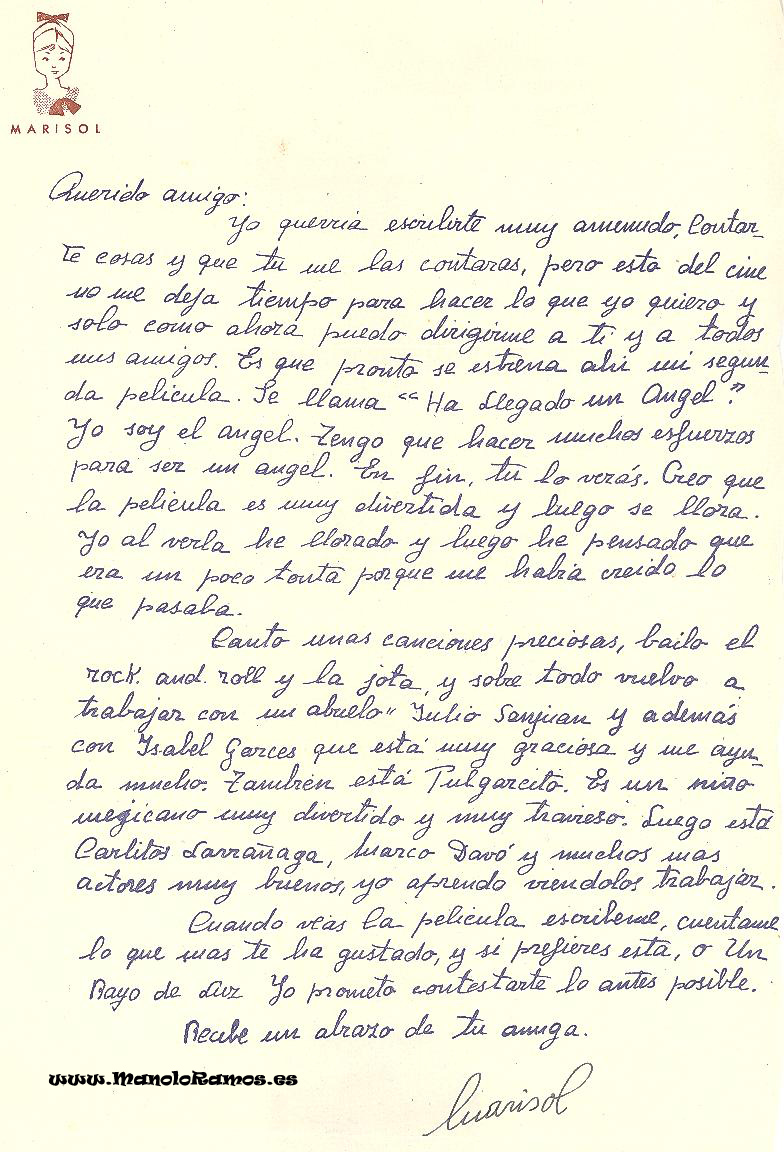 MARISOL
Querido amigo:
Yo querria escribirte muy amenudo, Contar-
te cosas y que tu me las contaras, pero esto del cine
no me deja tiempo para hacer lo que yo quiero y
solo como ahora puedo dirigirme a ti y a todos
mis amigos. Es que pronto se estrena ahi mi segun-
da pelicula. Se llama "Ha Llegado un Angel".
Yo soy el angel. Tengo que hacer muchos esfuerzos
para ser un angel. En fin, tu lo verás. Creo que
la pelicula es muy divertida y luego se llora.
Yo al verla he llorado y luego he pensado que
era un poco tonta porque me habia creido lo
que pasaba.
Canto unas canciones preciosas, bailo el
rock. and. roll y la jota, y sobre todo vuelvo a
trabajar con un abuelo" Julio Sanjuan y además
con Isabel Garces que está muy graciosa y me ayu-
da mucho. También está Pulgarcito. Es un niño
mejicano muy divertido y muy travieso. Luego está
Carlitos Larrañaga, Marco Davó y muchos mas
actores muy buenos, yo aprendo viendolos trabajar.
Cuando veas la pelicula escribeme, cuentame
lo que mas te ha gustado, y si prefieres esta, o Un
Rayo de Luz Yo prometo contestarte lo antes posible.
Recibe un abrazo de tu amiga.
www.ManoloRamos.es
Marisol